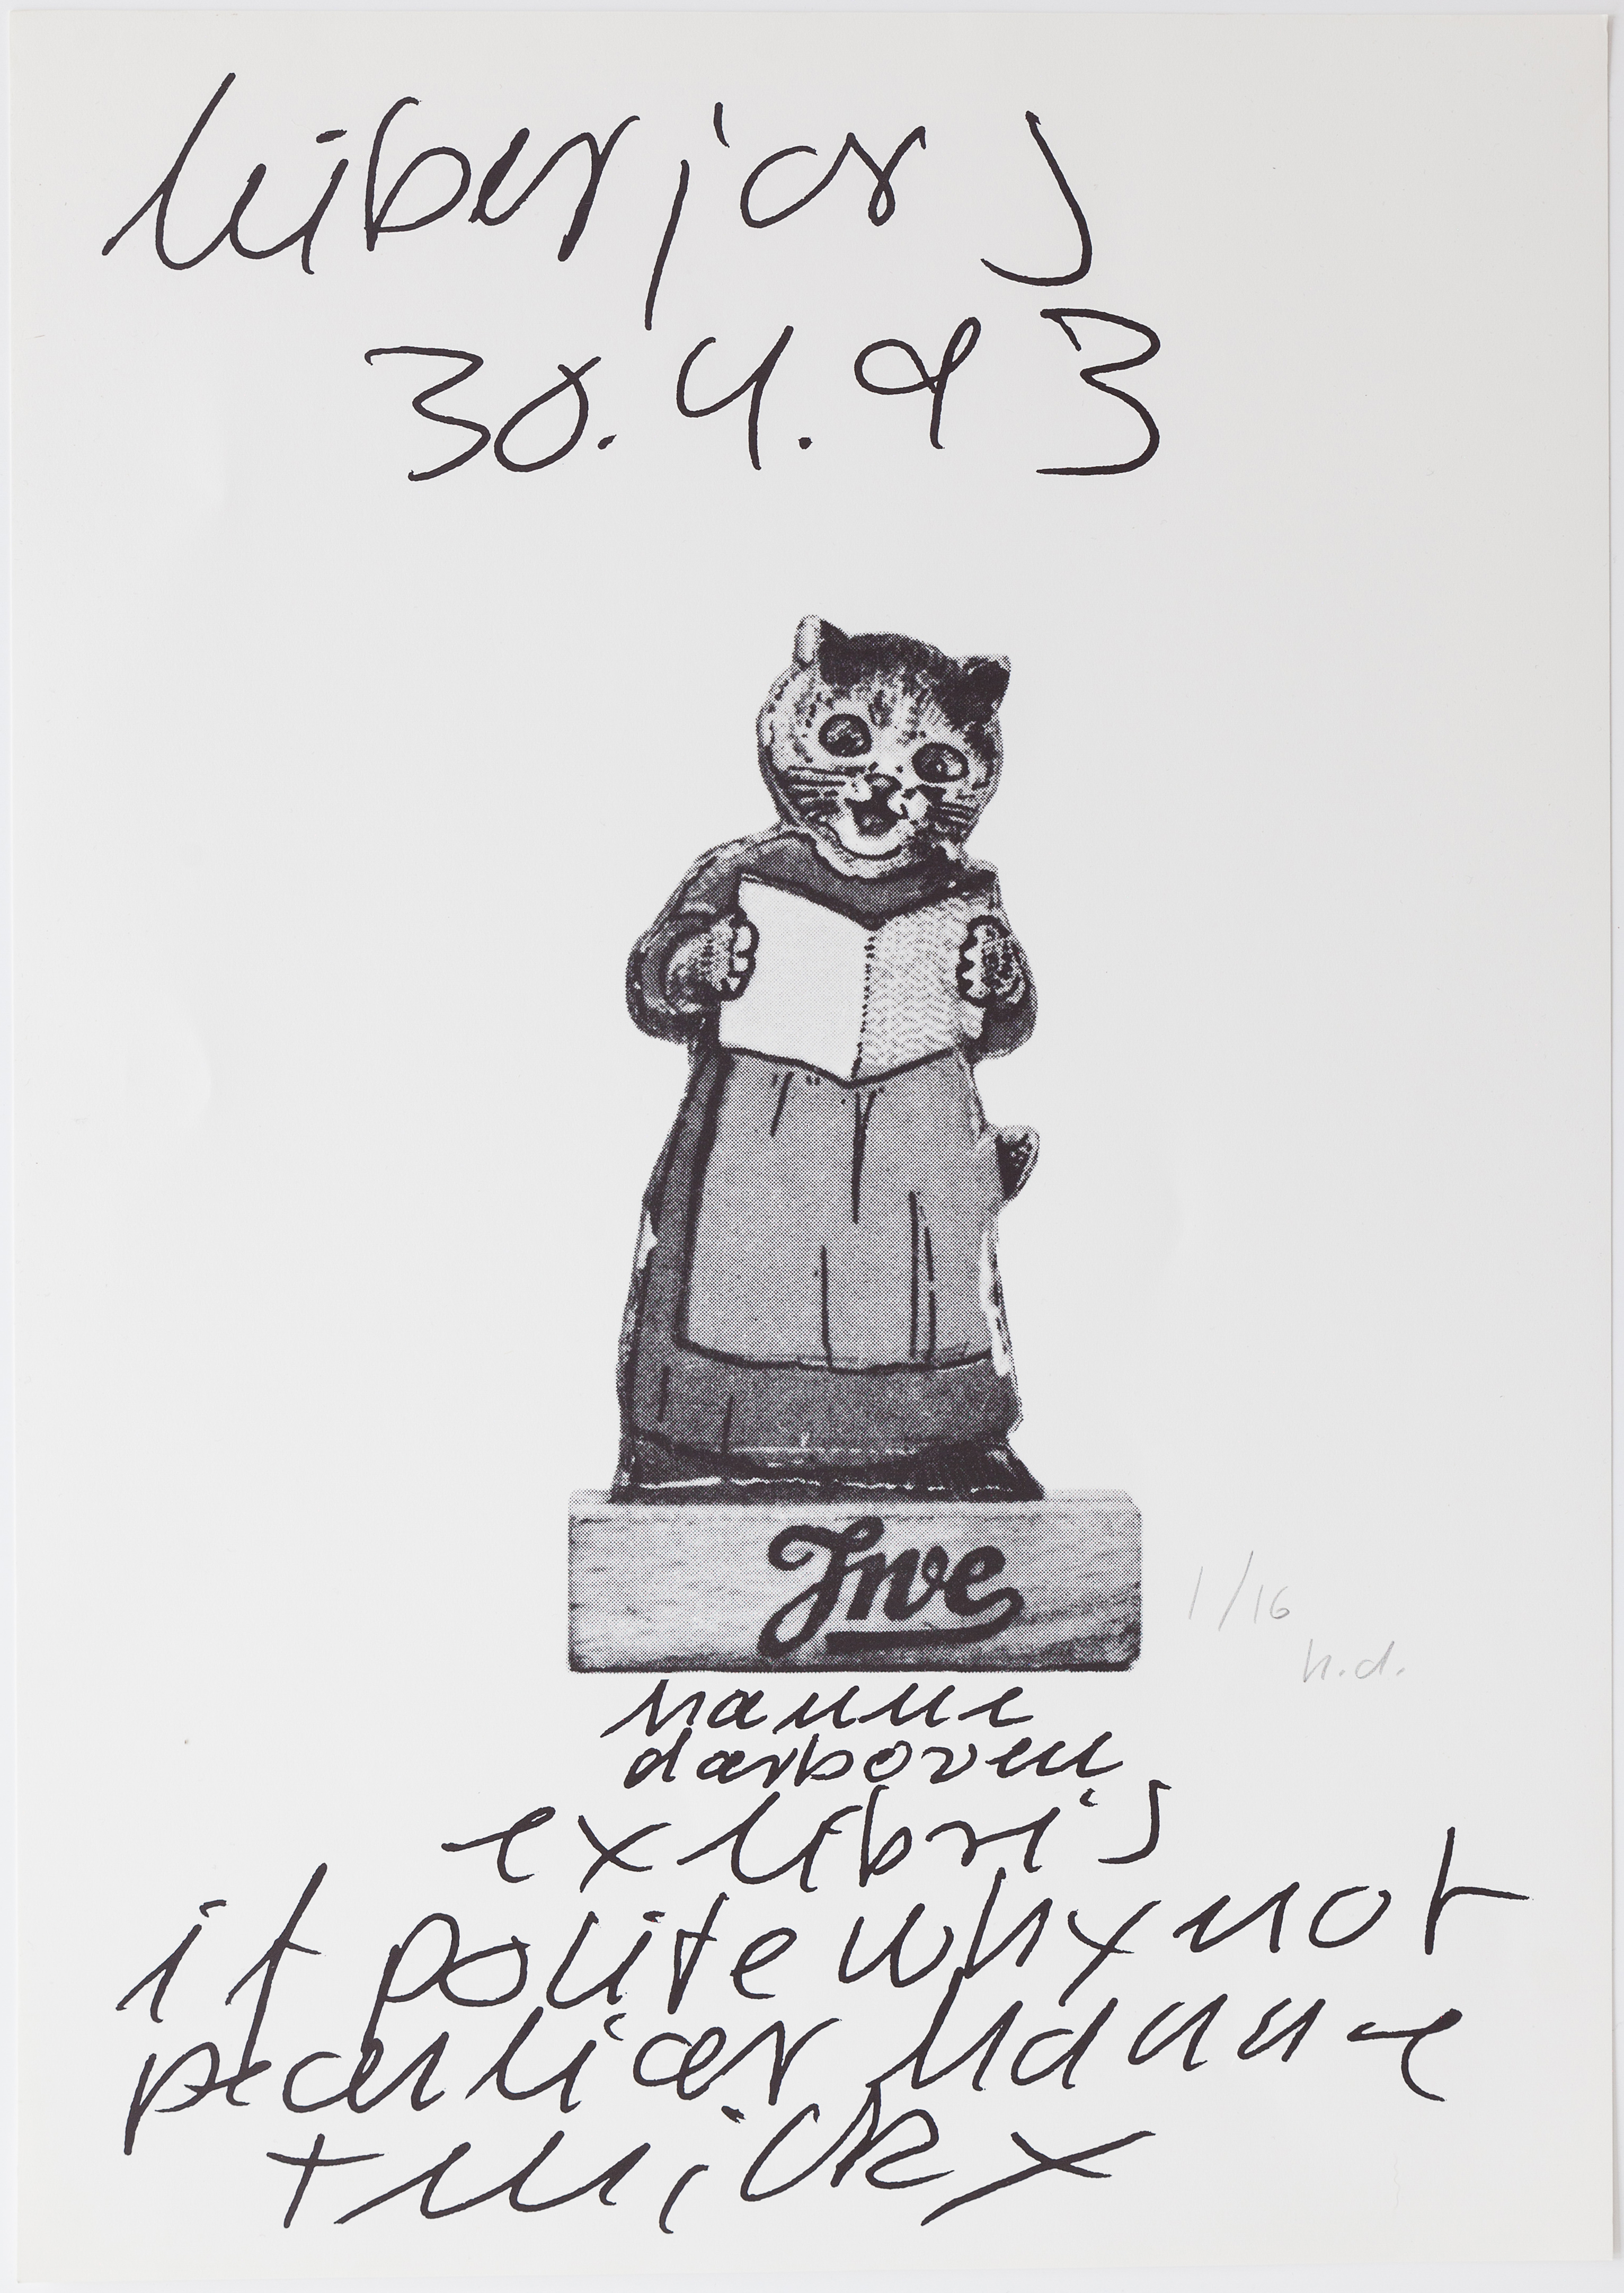 lieber
30.4.93
Jwe
1/16
h.d.
hanne
darboven
exlibris
if polite why not
peculiar hanne
+ micky